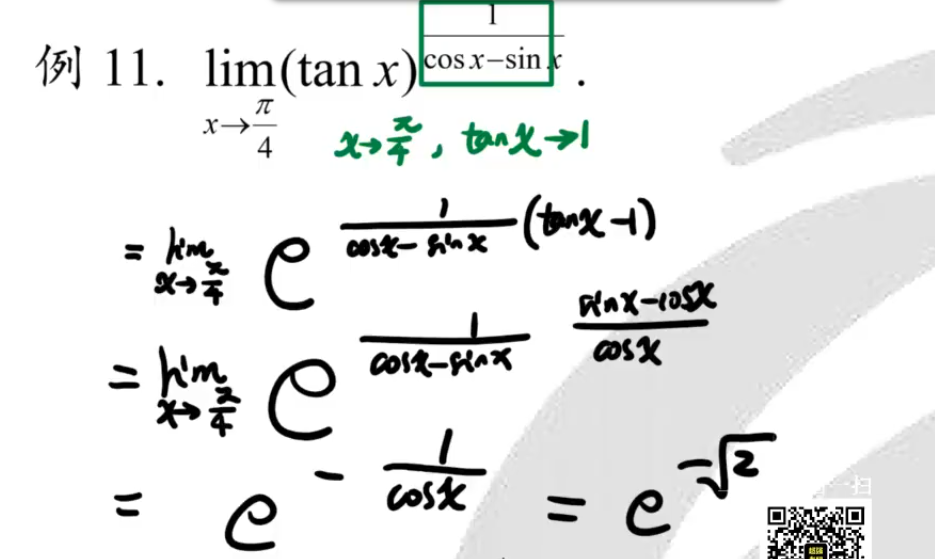 例 11. lim_{x→π/4} (tan x)^{1/(cos x−sin x)}.
x→π/4, tanx→1
= lim_{x→π/4} e^{1/(cosx−sinx) (tanx−1)}
= lim_{x→π/4} e^{1/(cosx−sinx) (sinx−cosx)/cosx}
= e^{−1/cosx} = e^{−√2}
扫